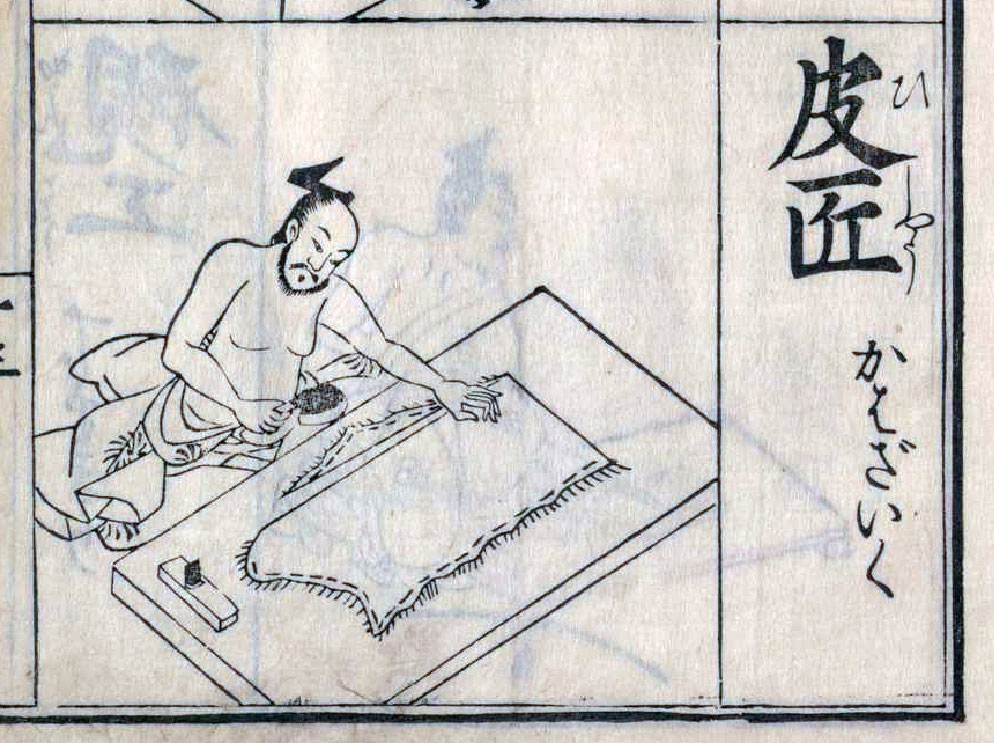 皮匠
ひしやう
かはざいく